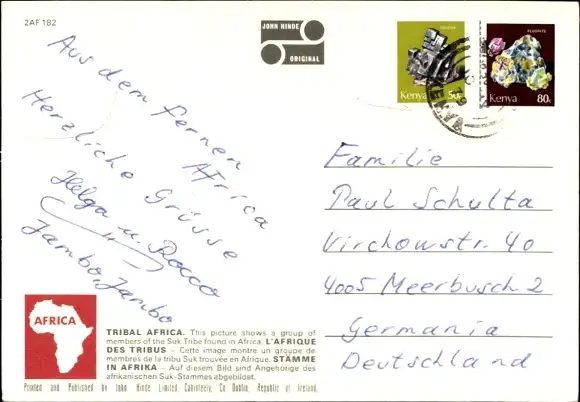 2AF 182
JOHN HINDE
ORIGINAL
Kenya 50c
Kenya 80c
Aus dem fernen
Africa
Herzliche Grüsse
Helga u. Rocco
Jambo, Jambo
Familie
Paul Schulta
Virchowstr. 40
4005 Meerbusch 2
Germania
Deutschland
AFRICA
TRIBAL AFRICA. This picture shows a group of
members of the Suk Tribe found in Africa. L'AFRIQUE
DES TRIBUS – Cette image montre un groupe de
membres de la tribu Suk trouvée en Afrique. STÄMME
IN AFRIKA – Auf diesem Bild sind Angehörige des
afrikanischen Suk-Stammes abgebildet.
Printed and Published by John Hinde Limited, Cabinteely, Co Dublin, Republic of Ireland.